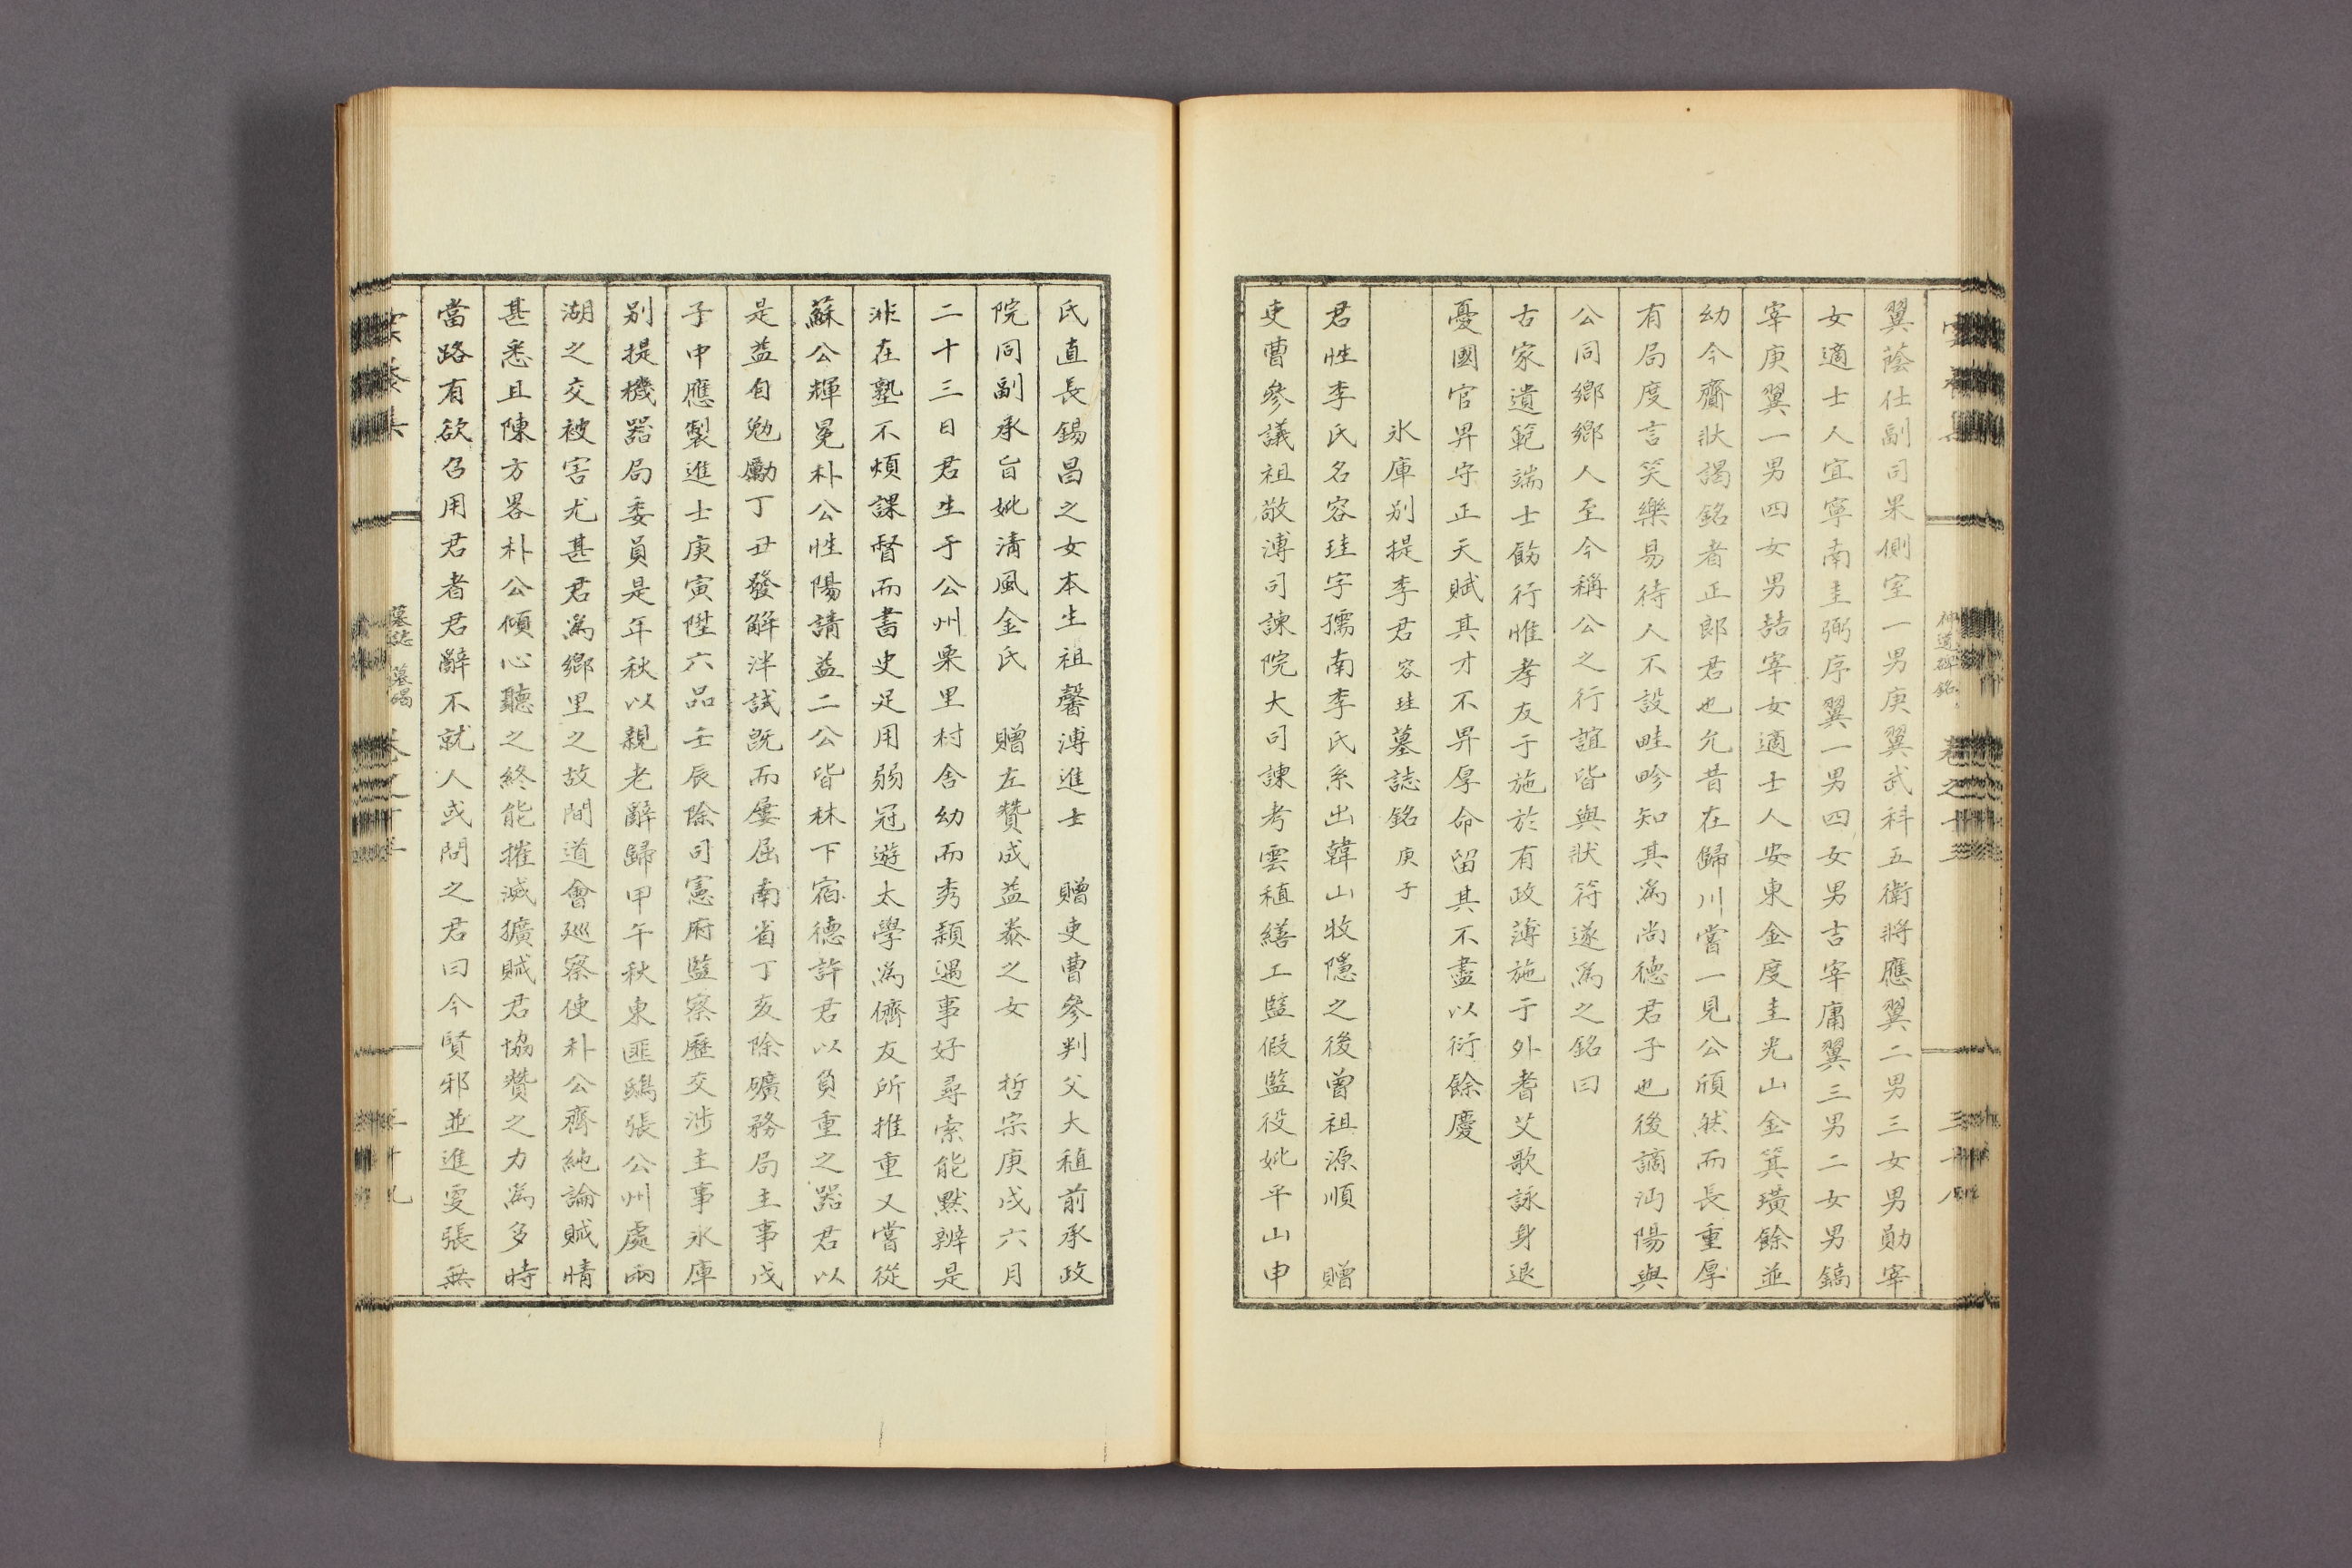 翼蔭仕副司果側室一男庚翼武科五衛將應翼二男三女男勛宰
女適士人宜寧南圭弼序翼一男四女男吉宰庸翼三男二女男鎬
宰庚翼一男四女男喆宰女適士人安東金度圭光山金箕璜餘並
幼今齎狀謁銘者正郎君也允昔在歸川嘗一見公頎然而長重厚
有局度言笑樂易待人不設畦畛知其爲尚德君子也後謫沔陽與
公同鄉鄉人至今稱公之行誼皆與狀符遂爲之銘曰
古家遺範端士飭行惟孝友于施於有政薄施于外耆艾歌詠身退
憂國官畀守正天賦其才不畀厚命留其不盡以衍餘慶
氷庫別提李君容珪墓誌銘庚子
君姓李氏名容珪字孺南李氏系出韓山牧隱之後曾祖源順 贈
吏曹參議祖敬溥司諫院大司諫考雲稙繕工監假監役妣平山申
氏直長錫昌之女本生祖馨溥進士 贈吏曹參判父大稙前承政
院同副承旨妣淸風金氏 贈左贊成益㤗之女 哲宗庚戌六月
二十三日君生于公州栗里村舍幼而秀穎遇事好尋索能默辨是
非在塾不煩課督而書史足用弱冠遊太學爲儕友所推重又嘗從
蘇公輝冕朴公性陽請益二公皆林下宿德許君以負重之器君以
是益自勉勵丁丑發解泮試旣而屢屈南省丁亥除礦務局主事戊
子中應製進士庚寅陞六品壬辰除司憲府監察歷交涉主事氷庫
別提機器局委員是年秋以親老辭歸甲午秋東匪鴟張公州處兩
湖之交被害尤甚君爲鄉里之故間道會廵察使朴公齊純論賊情
甚悉且陳方畧朴公傾心聽之終能摧滅獷賊君協贊之力爲多時
當路有欲召用君者君辭不就人或問之君曰今賢邪並進雯張無
墓誌 墓碣